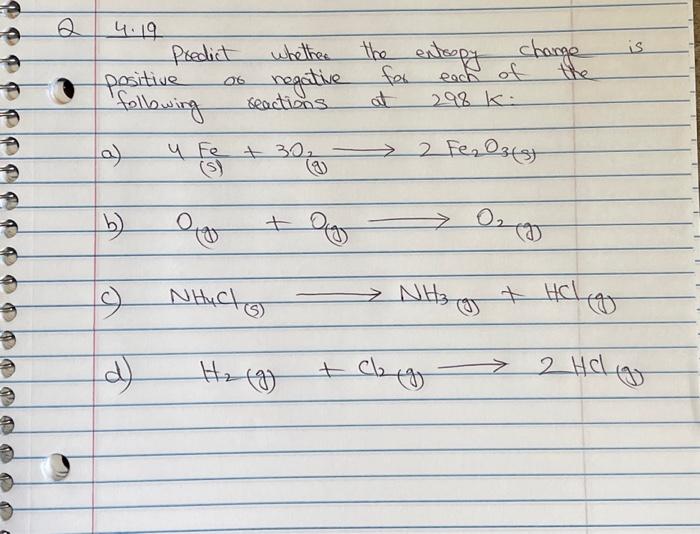 Q 4.19
Predict whether the entropy change is
positive or negative for each of the
following reactions at 298 K:
a) 4 Fe(s) + 3O2(g) ⟶ 2 Fe2O3(s)
b) O(g) + O(g) ⟶ O2(g)
c) NH4Cl(s) ⟶ NH3(g) + HCl(g)
d) H2(g) + Cl2(g) ⟶ 2 HCl(g)